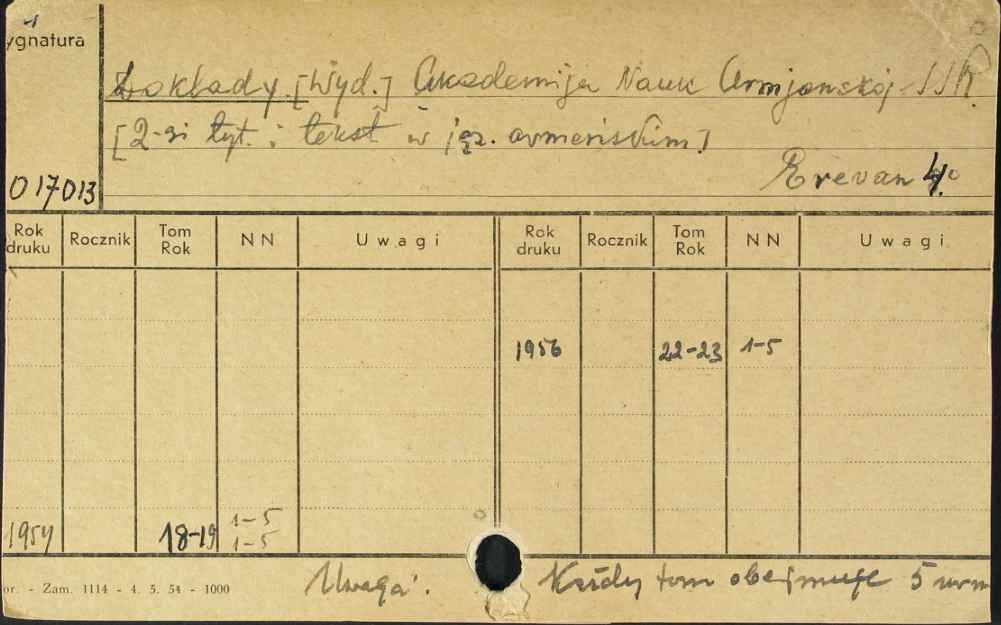 ygnatura
Dokłady. [Wyd.] Akademija Nauk Armjanskoj SSR.
[2-gi tyt. i tekst w jęz. armeńskim]
017013
Erevan 4°
Rok druku Rocznik Tom Rok NN Uwagi Rok druku Rocznik Tom Rok NN Uwagi
1956 22-23 1-5
1954 18-19 1-5
1-5
or. - Zam. 1114 - 4. 5. 54 - 1000
Uwaga: Każdy tom obejmuje 5 nrm